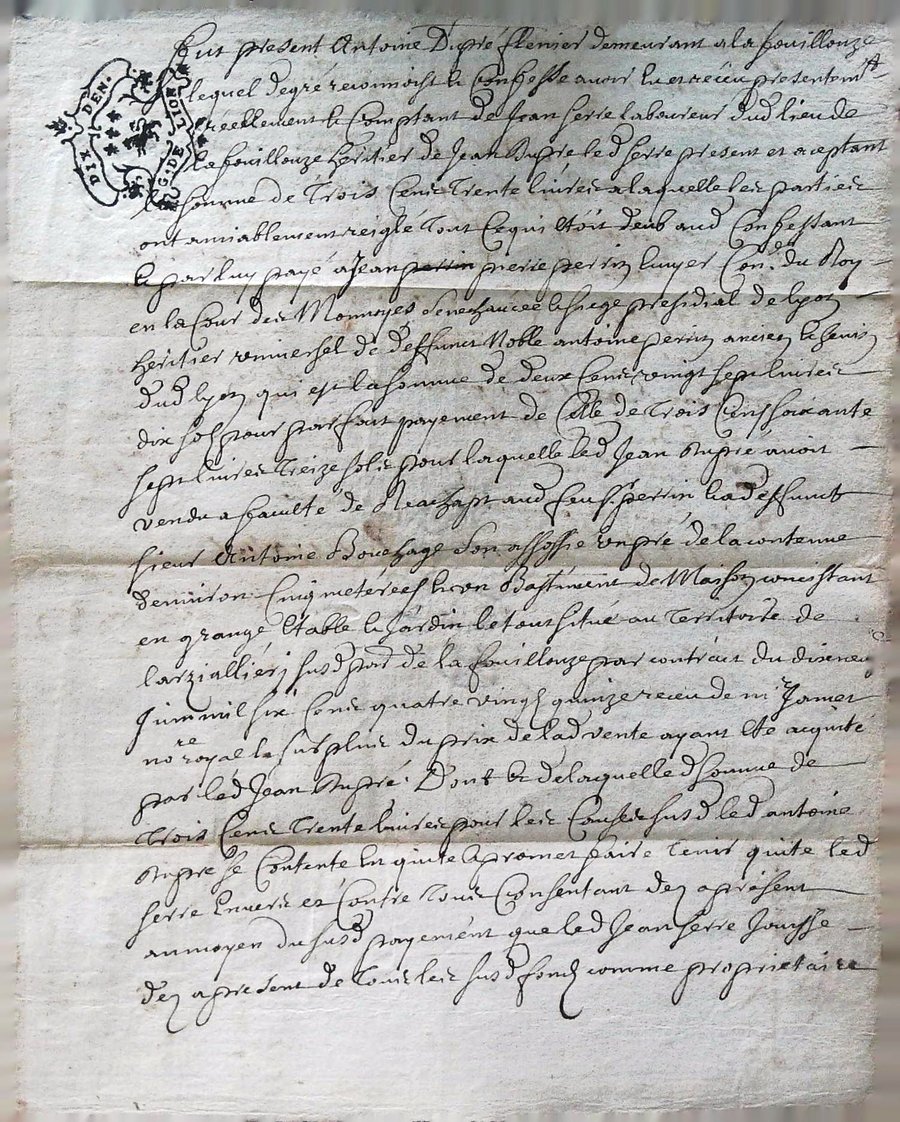 G. DE LION
DIX DEN.
Fut present Antoine Dupré demeurant a la fouillouze
lequel de gré reconnoist & Confesse avoir eu et receu presentemt
reellement & Comptant de Jean Serre laboureur dud lieu de
la fouillouze heritier de Jean Dupre led Serre present et aceptant
la somme de Trois Cens Trente livres a laquelle les parties
ont amiablement reiglé Tout Cequi étoit deub aud Confessant
& par luy payé a Jean perrin pierre perrin Coner du Roy
en la Cour des Monnoyes Senechaucée & siege presidial de lyon
heritier universel de deffunct Noble antoine perrin ancien Echevin
dud lyon qui est la somme de deux Cens vingt sept livres
dix sols pour parfait payement de Celle de Trois Cens soixante
sept livres Treize sols pour laquelle led Jean Dupré avoit
vendu a faculté de Reachapt aud feu Sr perrin & a deffunct
sieur Antoine Bouchage Son assossié un pré de la contenue
denviron Cinq meterees & un Bastiment de Maison concistant
en grange étable & Jardin le tout situé au Territoire de
larzialliery susd parr de la fouillouze par contract du dixneuf
Juin mil six Cens quatre vingt quinze receu de mr Jamet
nore royal le surplus du prix de lad vente ayant été acquité
par led Jean Dupré. Dont & de laquelle d somme de
Trois Cens Trente livres pour les Causes susd led antoine
Dupre se Contente en quite & promet faire Tenir quite led
Serre Envers et Contre Tous Consentant des apresent
au moyen du susd payement que led Jean Serre Jouisse
des apresent de Tous les susd fonds comme proprietaire